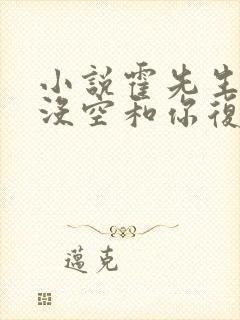 小說霍先生
沒空和你復
邁克